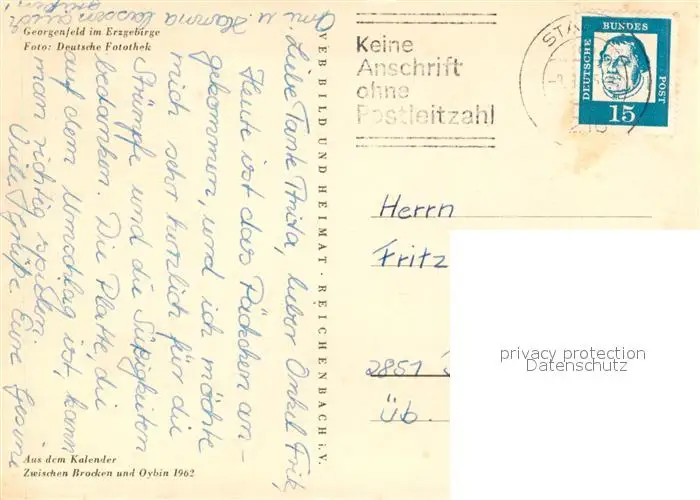 Georgenfeld im Erzgebirge
Foto: Deutsche Fotothek
Liebe Tante Anita, lieber Onkel Fritz,
Heute ist das Päckchen an-
gekommen, und ich möchte
mich sehr herzlich für die
Strümpfe und die Süßigkeiten
bedanken. Die Platte, die
auf dem Umschlag ist, kann
man richtig spielen.
Viele Grüße Eure Gesine
u. Hanna lassen auch
grüßen!
VEB BILD UND HEIMAT · REICHENBACH i. V.
Aus dem Kalender
Zwischen Brocken und Oybin 1962
Keine
Anschrift
ohne
Postleitzahl
STA
DEUTSCHE
BUNDES
POST
15
Herrn
Fritz
2851
üb.
privacy protection
Datenschutz